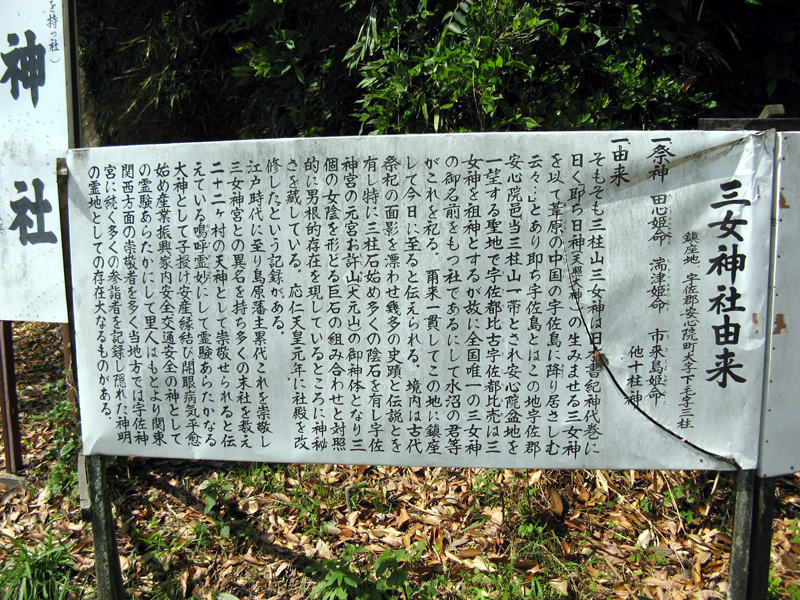 三女神社由来
鎮座地 宇佐郡安心院町大字下毛字三柱
一祭神 田心姫命 湍津姫命 市杵島姫命
他十柱神
一由来
そもそも三柱山三女神は日本書紀神代巻に
曰く即ち日神（天照大神）の生みませる三女神
を以て葦原の中国の宇佐島に降り居さしむ
云々…」とあり即ち宇佐島とはこの地宇佐郡
安心院邑当三柱山一帯とされ安心院盆地を
一望する聖地で宇佐都比古宇佐都比売は三
女神を祖神とするが故に全国唯一の三女神
の御名前をもつ社であるにして水沼の君等
がこれを祀る。爾来一貫してこの地に鎮座
して今日に至ると伝えられる。境内は古代
祭祀の面影を漂わせ幾多の史蹟と伝説とを
有し特に三柱石始め多くの陰石を有し宇佐
神宮の元宮お許山（大元山）の御神体となり三
個の女陰を形どる巨石の組み合わせと対照
的に男根的存在を現しているところに神秘
さを蔵している。応仁天皇元年に社殿を改
修したという記録がある。
江戸時代に至り島原藩主累代これを崇敬し
三女神宮との異名を持ち多くの末社を教え
二十二ヶ村の天神として崇敬せられると伝
えている嗚呼霊妙にして霊験あらたかなる
大神として子授け安産縁結び開眼病気平愈
始め産業振興家内安全交通安全の神として
の霊験あらたかにして里人はもとより関東
関西方面の崇敬者を多く当地方では宇佐神
宮に続く多くの参詣者を記録し隠れた神明
の霊地としての存在大なるものがある。
を持つ社）
神
神社